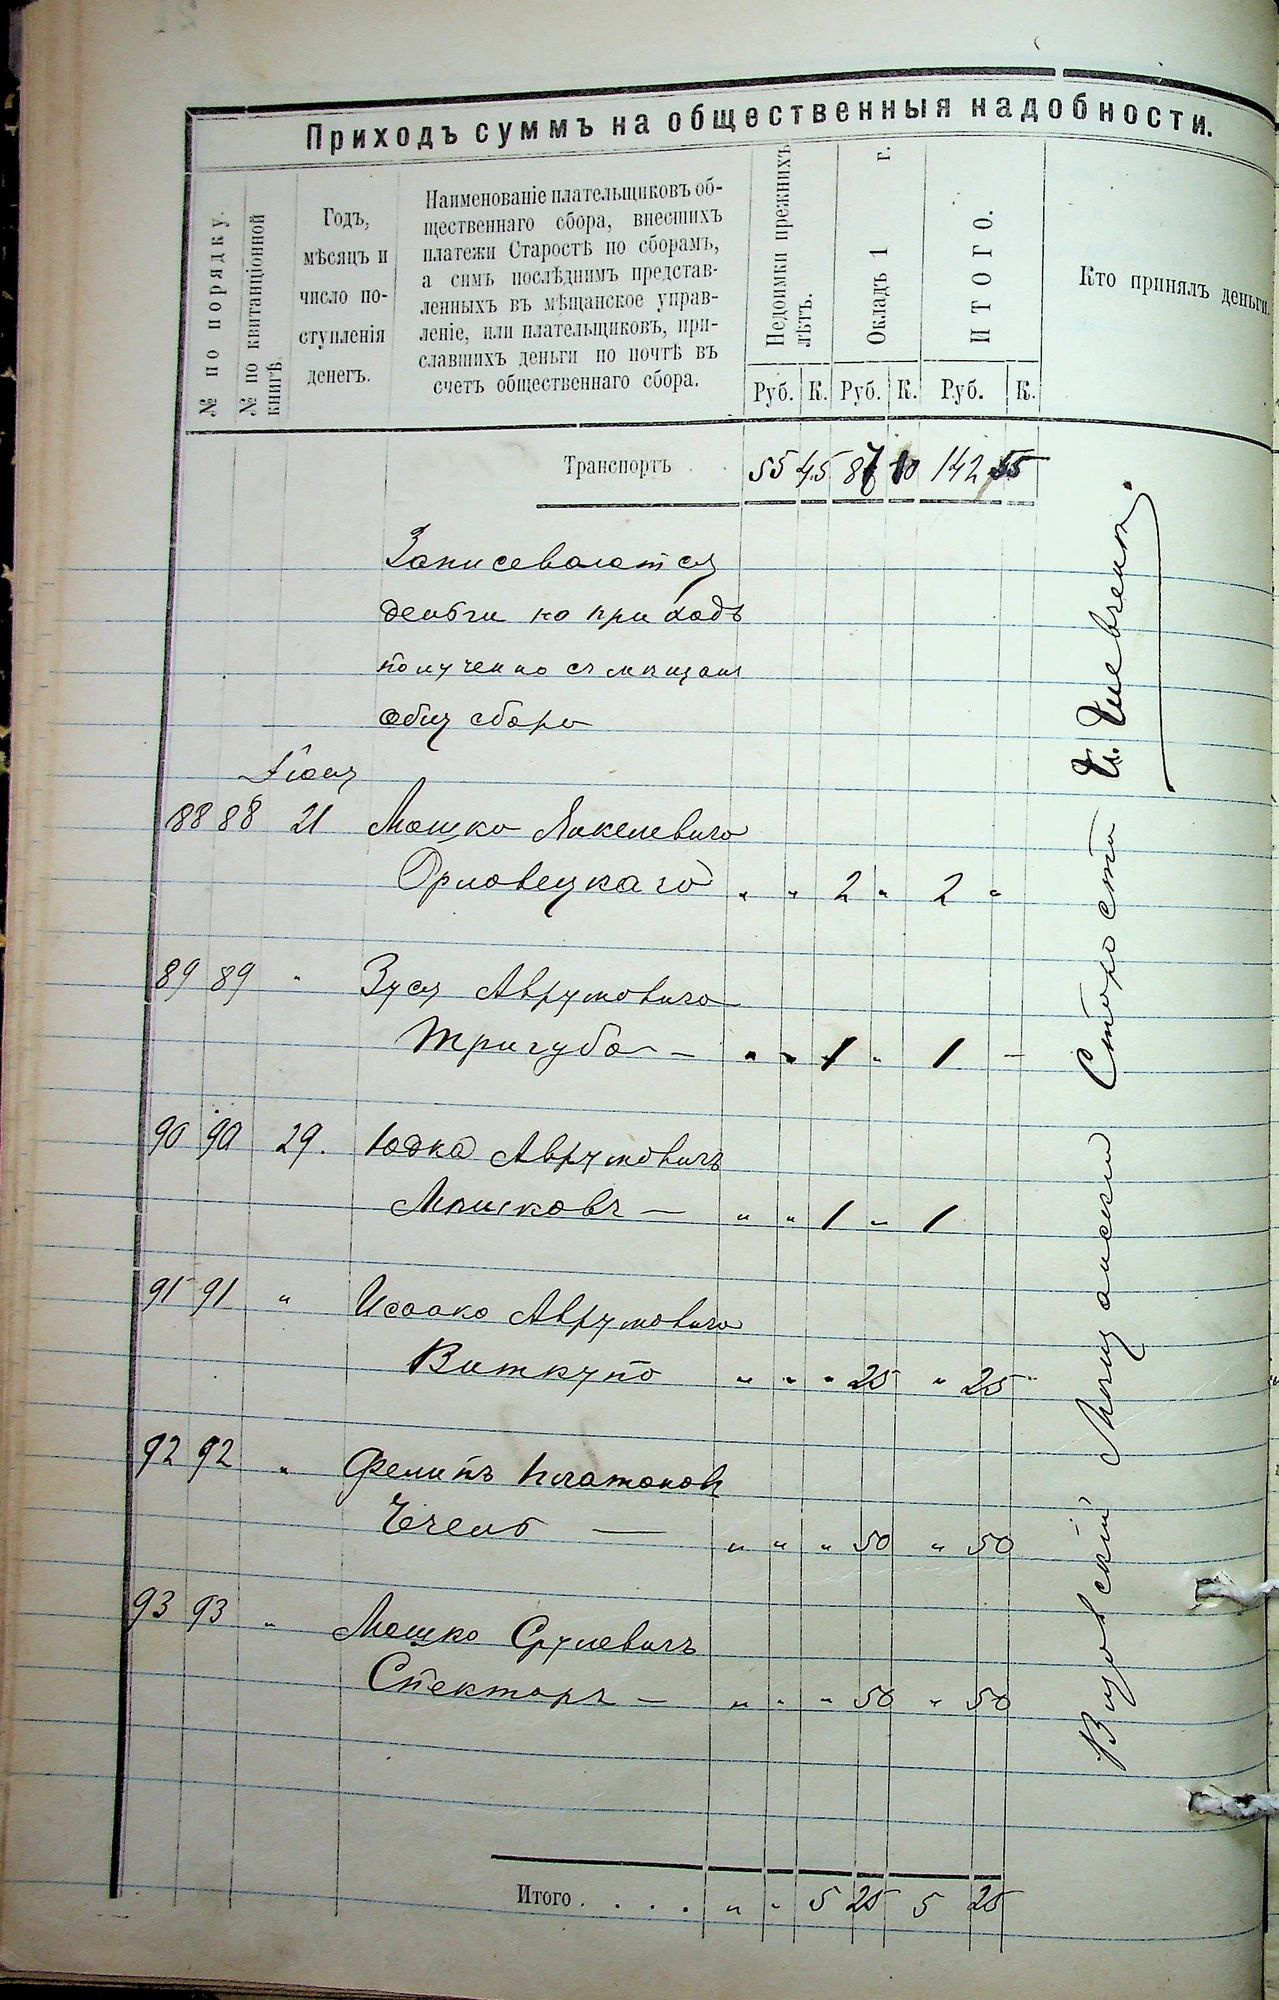 Приходъ суммъ на общественныя надобности.
№ по порядку.
№ по квитанціонной
книгѣ.
Годъ,
мѣсяцъ и
число по-
ступленія
денегъ.
Наименованіе плательщиковъ об-
щественнаго сбора, внесшихъ
платежи Старостѣ по сборамъ,
а симъ послѣднимъ представ-
ленныхъ въ мѣщанское управ-
леніе, или плательщиковъ, при-
славшихъ деньги по почтѣ въ
счетъ общественнаго сбора.
Недоимки прежнихъ
лѣтъ.
Окладъ 1 г.
ИТОГО.
Кто принялъ деньги.
Руб. К. Руб. К. Руб. К.
Транспортъ . . 55 45 87 10 142 55
Записеваются
деньги на приходъ
получено съ мещан
общ сбора
88 88 21 Мошка
Орловецкаго " " 2 " 2 "
89 89 " Зуся Аврумовича
Тригуба — " " 1 " 1 —
90 90 29. Юдка Аврумовичъ
" " 1 " 1
91 91 " Исаака Аврумовича
" " " 25 " 25 "
92 92 " Филипъ Платонов
Чечель — " " " 50 " 50
93 93 " Мошко Срулевичъ
Спекторъ — " " " 50 " 50
Итого . . . . " " 5 25 5 25
Мещански Староста